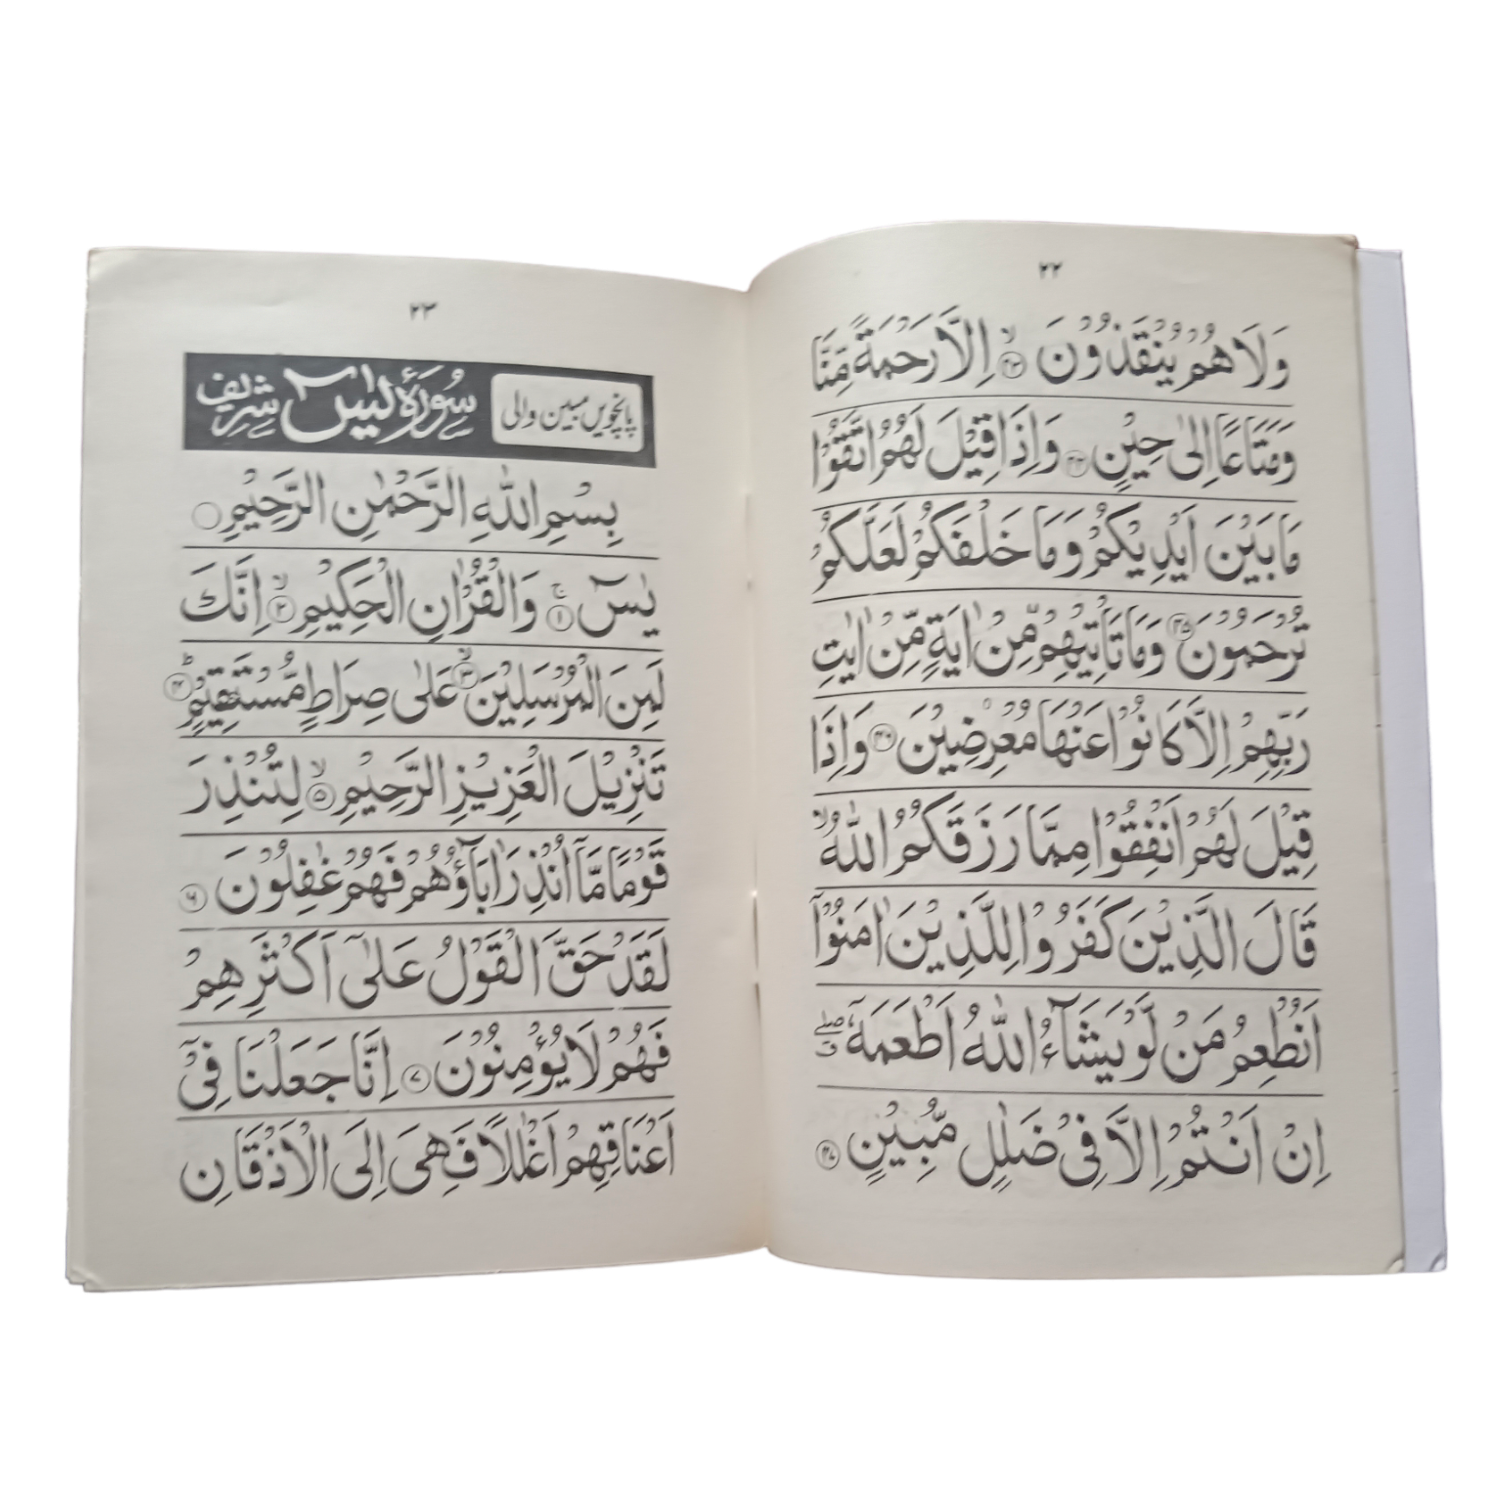 ٢٢
وَلَا هُمْ يُنْقَذُوْنَ ﴿٤٣﴾ اِلَّا رَحْمَةً مِّنَّا
وَمَتَاعًا اِلٰى حِيْنٍ ﴿٤٤﴾ وَاِذَا قِيْلَ لَهُمُ اتَّقُوْا
مَا بَيْنَ اَيْدِيْكُمْ وَمَا خَلْفَكُمْ لَعَلَّكُمْ
تُرْحَمُوْنَ ﴿٤٥﴾ وَمَا تَاْتِيْهِمْ مِّنْ اٰيَةٍ مِّنْ اٰيٰتِ
رَبِّهِمْ اِلَّا كَانُوْا عَنْهَا مُعْرِضِيْنَ ﴿٤٦﴾ وَاِذَا
قِيْلَ لَهُمْ اَنْفِقُوْا مِمَّا رَزَقَكُمُ اللّٰهُ ۙ
قَالَ الَّذِيْنَ كَفَرُوْا لِلَّذِيْنَ اٰمَنُوْٓا
اَنُطْعِمُ مَنْ لَّوْ يَشَآءُ اللّٰهُ اَطْعَمَهٗٓ ۖ
اِنْ اَنْتُمْ اِلَّا فِيْ ضَلٰلٍ مُّبِيْنٍ ﴿٤٧﴾
٢٣
پانچویں مبین والی سُوْرَۂ یٰسٓ شریف
بِسْمِ اللّٰهِ الرَّحْمٰنِ الرَّحِيْمِ ○
يٰسٓ ۚ ﴿١﴾ وَالْقُرْاٰنِ الْحَكِيْمِ ۙ ﴿٢﴾ اِنَّكَ
لَمِنَ الْمُرْسَلِيْنَ ۙ ﴿٣﴾ عَلٰى صِرَاطٍ مُّسْتَقِيْمٍ ؕ ﴿٤﴾
تَنْزِيْلَ الْعَزِيْزِ الرَّحِيْمِ ۙ ﴿٥﴾ لِتُنْذِرَ
قَوْمًا مَّآ اُنْذِرَ اٰبَآؤُهُمْ فَهُمْ غٰفِلُوْنَ ﴿٦﴾
لَقَدْ حَقَّ الْقَوْلُ عَلٰٓى اَكْثَرِهِمْ
فَهُمْ لَا يُؤْمِنُوْنَ ﴿٧﴾ اِنَّا جَعَلْنَا فِيْٓ
اَعْنَاقِهِمْ اَغْلٰلًا فَهِيَ اِلَى الْاَذْقَانِ